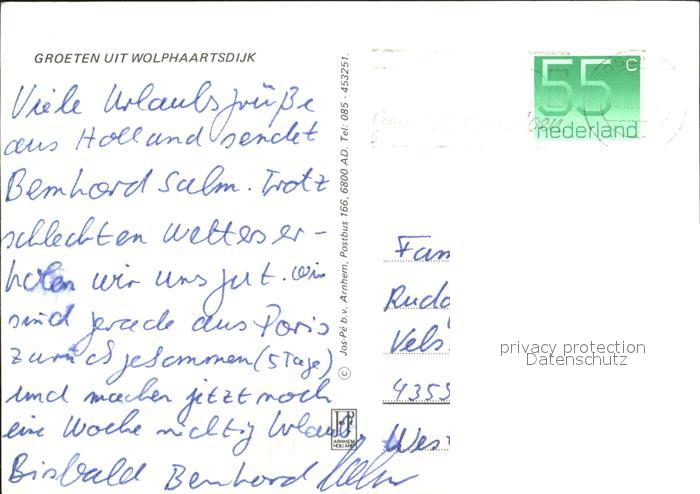 GROETEN UIT WOLPHAARTSDIJK
Viele Urlaubsgrüße
aus Holland sendet
Bernhard Salm. Trotz
schlechten Wetters er-
holen wir uns gut. Wir
sind gerade aus Paris
zurückgekommen (5 Tage)
und machen jetzt noch
eine Woche richtig Urlaub.
Bis bald Bernhard
© Jos-Pé b.v. Arnhem, Postbus 166, 6800 AD. Tel: 085 - 453251.
JP
ARNHEM
HOLLAND
55 c
nederland
Fam
Rudo
Vels
4355
Wes
privacy protection
Datenschutz